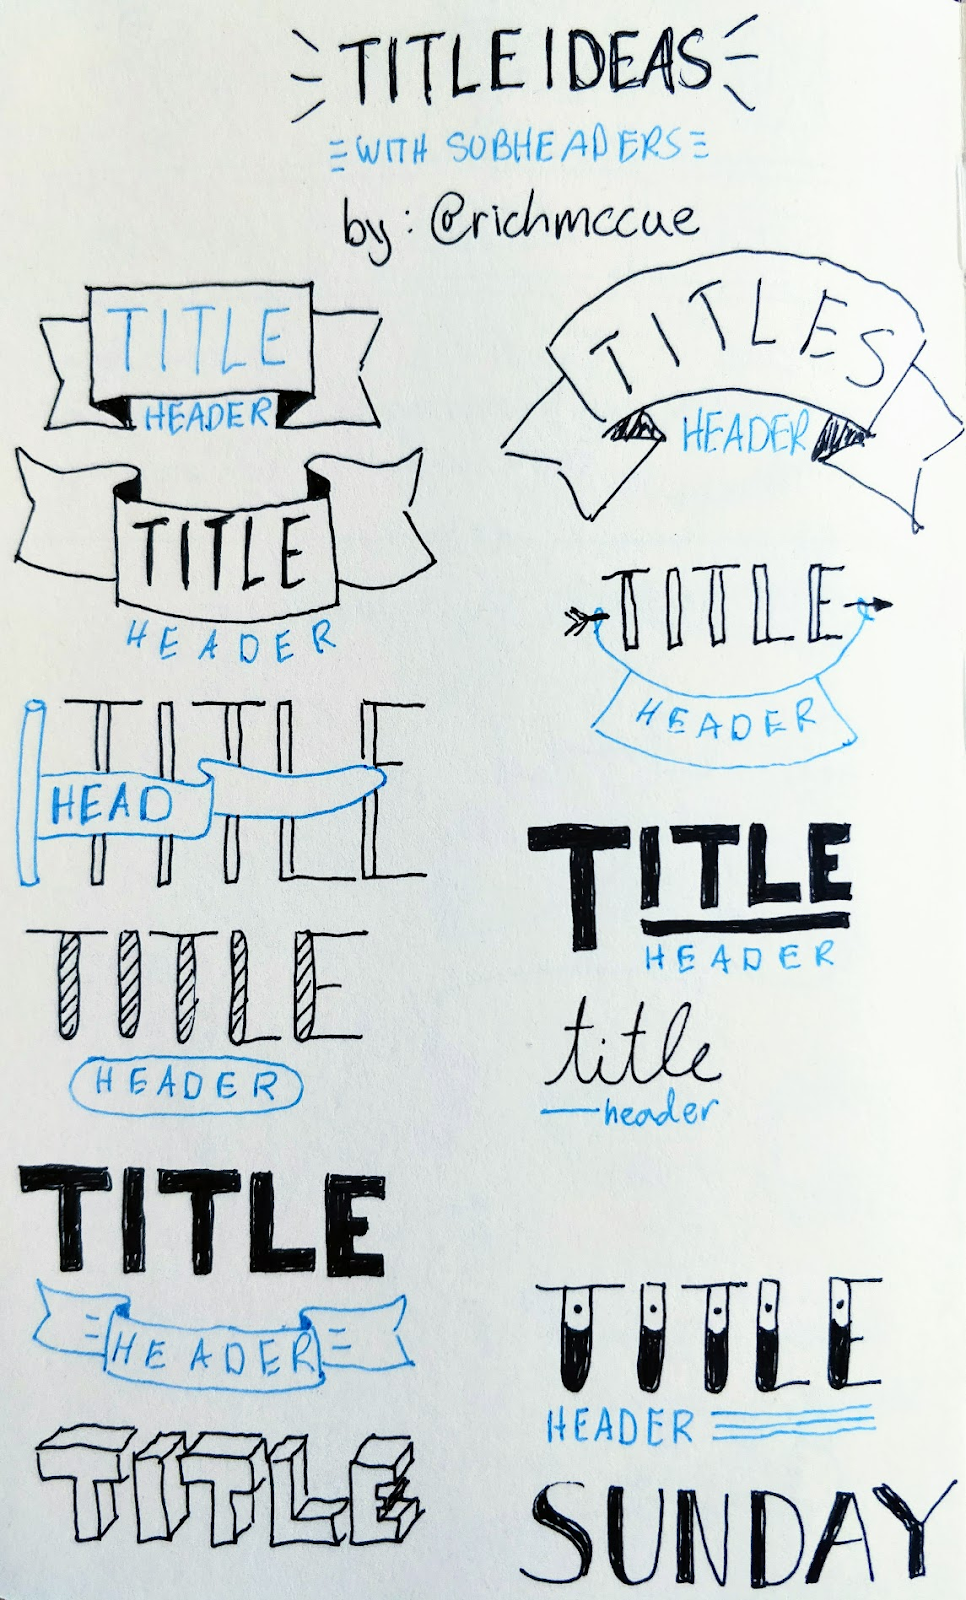 TITLE IDEAS
WITH SUBHEADERS
by: @richmccue
TITLE
HEADER
TITLES
HEADER
TITLE
HEADER
TITLE
HEADER
TITLE
HEAD
TITLE
HEADER
TITLE
HEADER
title
header
TITLE
HEADER
TITLE
HEADER
TITLE
SUNDAY